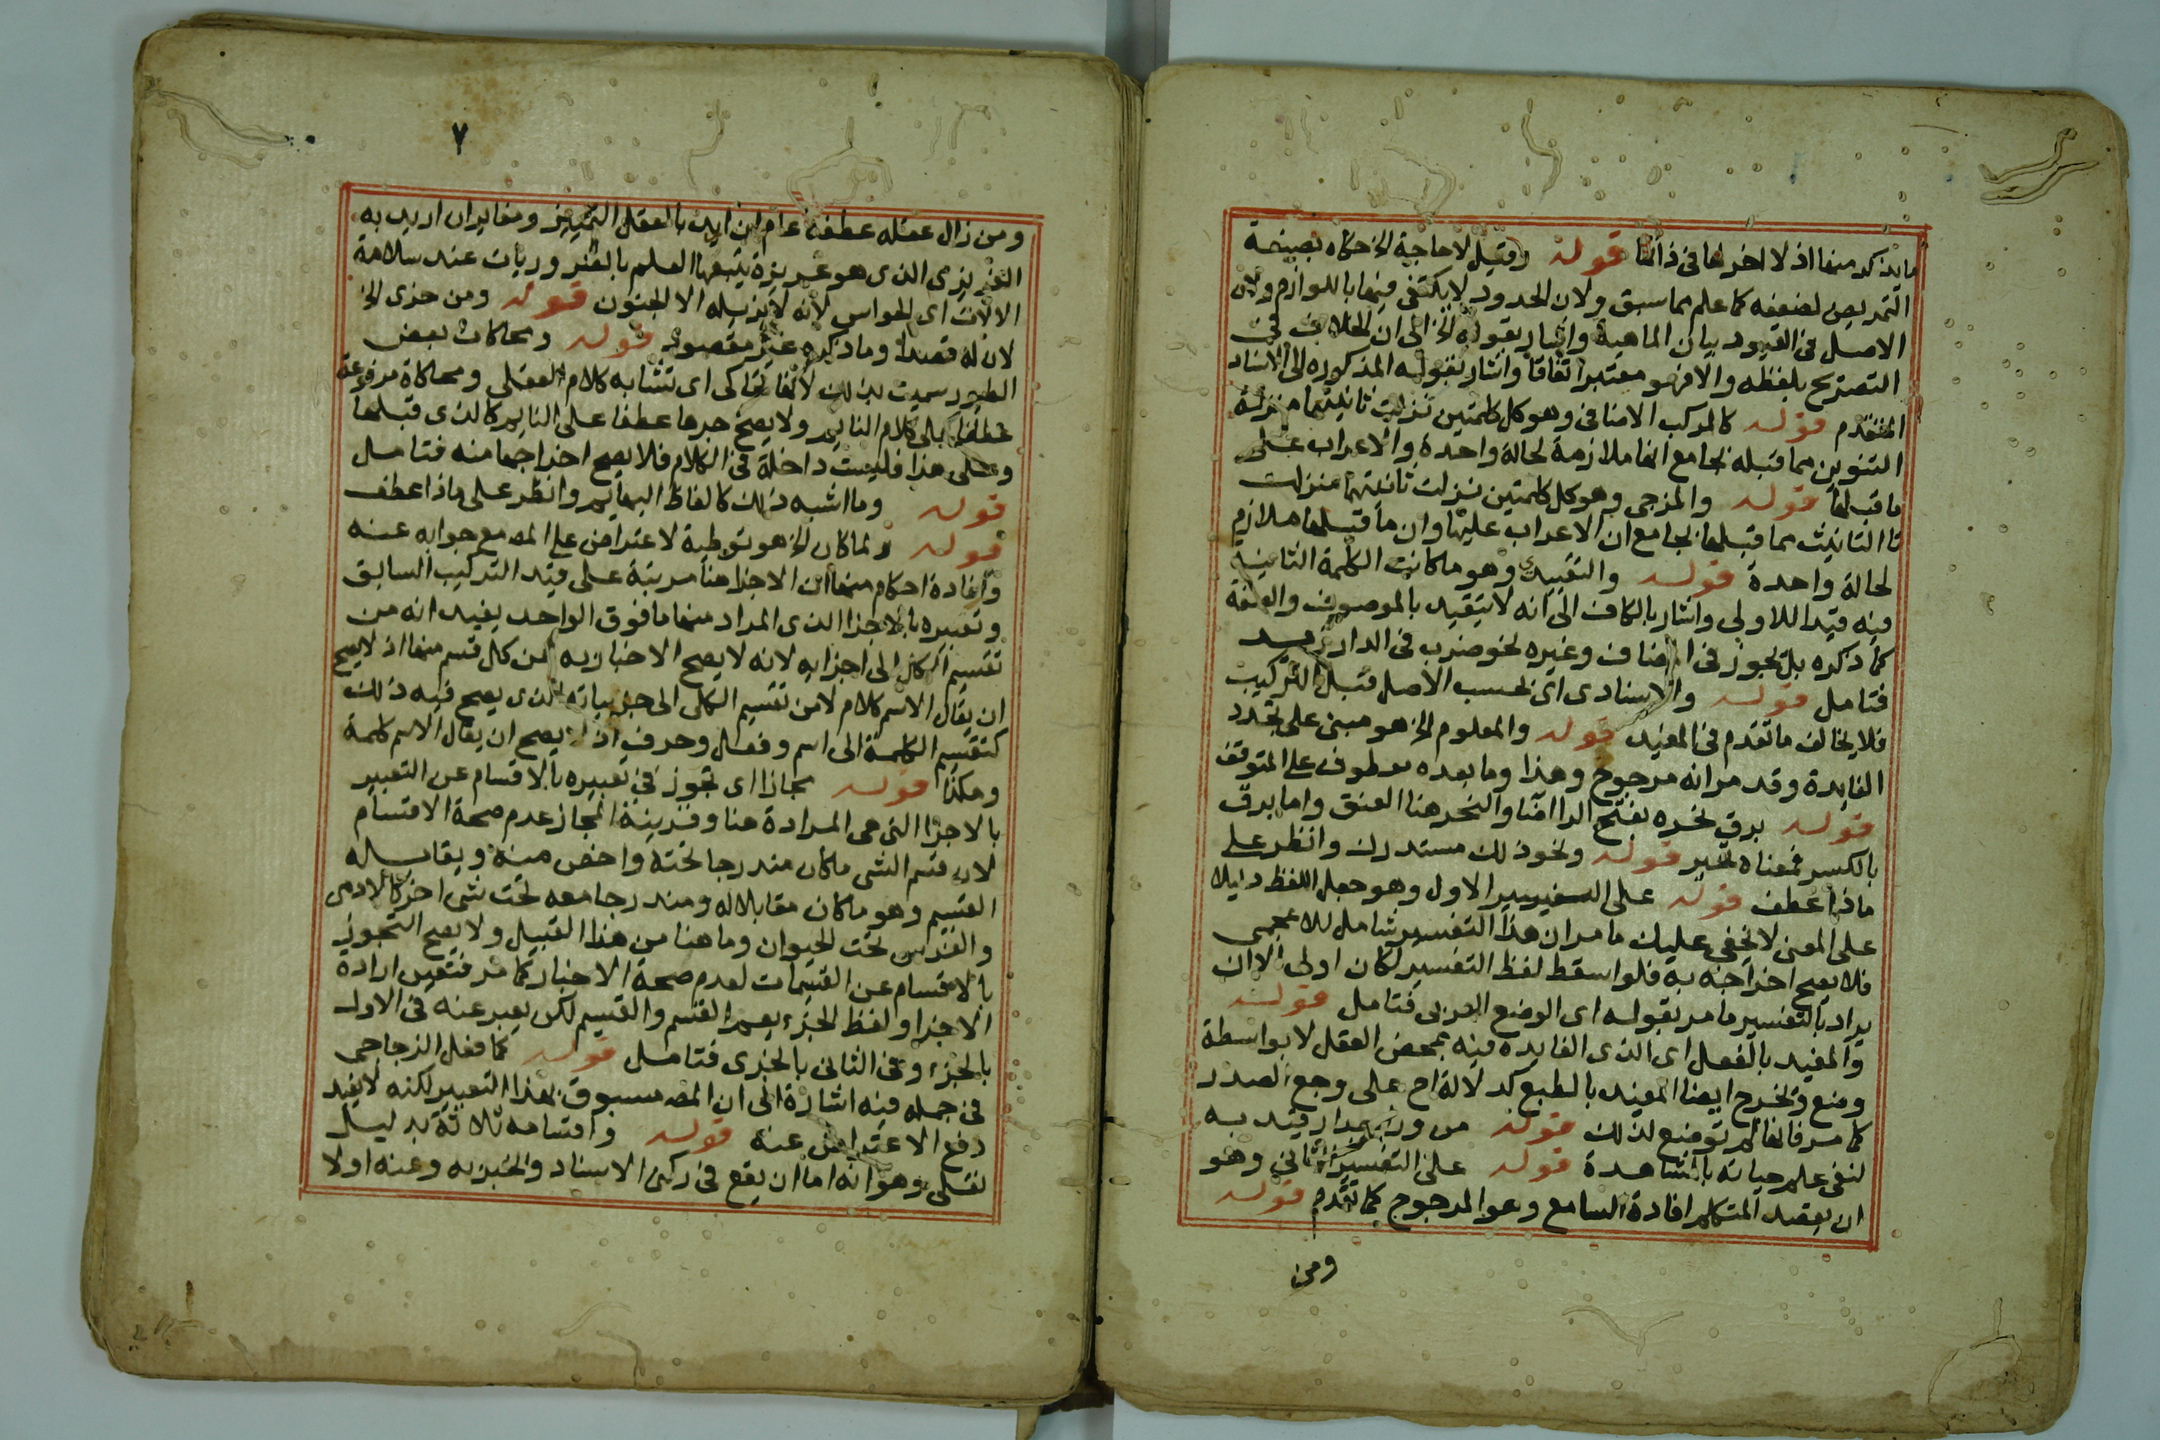 ما يذكر منها اذ لا اخر لها في ذاتها قوله وقيل لا حاجة الخ حكاه بصيغة
التمريض لضعفه كما علم مما سبق ولان الحدود لا يكتفى فيها باللوازم ولان
الاصل في القيود بيان الماهية واشار بقوله الخ الى ان الخلاف في
التصريح بلفظه والا فهو معتبر اتفاقا واشار بقوله المذكوره الى الاسناد
المتقدم قوله كالمركب الاضافي وهو كل كلمتين نزلت ثانيتهما منزلة
التنوين مما قبله بجامع انها ملازمة لحالة واحدة والاعراب على
ما قبلها قوله والمزجي وهو كل كلمتين نزلت ثانيتهما منزلت
تا التانيث مما قبلها بجامع ان الاعراب عليها وان ما قبلها ملازم
لحالة واحدة قوله والتقييدي وهو ما كانت الكلمة الثانية
فيه قيدا للاولى واشار بالكاف الى انه لا يتقيد بالموصوف والصفة
كما ذكره بل يجوز في المضاف وغيره نحو ضرب في الدار زيد
فتامل قوله والاسنادى اى بحسب الاصل قبل التركيب
فلا يخالف ما تقدم في المفيد قوله والمعلوم الخ هو مبنى على تجدد
الفايدة وقد مر انه مرجوح وهذا وما بعده معطوف على المتوقف
قوله برق نحره بفتح الرا امنا والنحر هنا العنق واما برق
بالكسر فمعناه تحير قوله ونحو ذلك مستدرك وانظر على
ماذا عطف قوله على التفسير الاول وهو جعل اللفظ دليلا
على المعنى لا يخفى عليك ما مر ان هذا التفسير شامل للاعجمى
فلا يصح اخراجه به فلو اسقط لفظ التفسير لكان اولى الا ان
يراد بالتفسير ما مر بقوله اى الوضع العربى فتامل قوله
والمفيد بالفعل اى الذى الفايده فيه بمحض العقل لا بواسطة
وضع وتخرج ايضا المفيد بالطبع كدلالة اح على وجع الصدر
كما مر فانها لم توضع لذلك قوله من ورا جدار قيد به
لنفى علم حياته بالمشاهدة قوله على التفسير الثاني وهو
ان يقصد المتكلم افادة السامع وهو المرجوح كما تقدم قوله
ومن
٧
ومن زال عقله عطفه عام ان اريد بالعقل التمييز ومغاير ان اريد به
الغريزى الذى هو غريزة يتبعها العلم بالضروريات عند سلامة
الالات اى الحواس لانه لا يزيله الا الجنون قوله ومن جرى الخ
لان له قصدا وما ذكره غير مقصود قوله ومحاكات بعض
الطيور سميت بذلك لانها تحاكى اى تشابه كلام العقلى ومحاكاة مرفوعة
عطفا على كلام النايم ولا يصح جرها عطفا على النايم كالذى قبلها
وعلى هذا فليست داخلة في الكلام فلا يصح اخراجها منه فتامل
قوله وما اشبه ذلك كالفاظ البهايم وانظر على ماذا عطف
قوله ولما كان الخ هو توطية لاعتراض على المص مع جوابه عنه
وافادة احكام منها ان الاجزا هنا مرتبة على قيد التركيب السابق
وتعبيره بالاجزا الذى المراد منها ما فوق الواحد يفيد انه من
تقسيم الكل الى اجزايه لانه لا يصح الاخبار به عن كل قسم منها اذ لا يصح
ان يقال الاسم كلام لا من تقسيم الكلى الى جزيياته الذى يصح فيه ذلك
كتقسيم الكلمة الى اسم وفعل وحرف اذ يصح ان يقال الاسم كلمة
وهكذا قوله مجازا اى تجوز في تعبيره بالاقسام عن التعبير
بالاجزا التى هى المرادة هنا وقرينة المجاز عدم صحة الاقسام
لان قسم الشى ما كان مندرجا تحته واخص منه ويقابله
القسيم وهو ما كان مقابلا له ومندرجا معه تحت شى اخر كالادمى
والفرس تحت الحيوان وما هنا من هذا القبيل ولا يصح التجوز
بالاقسام عن القسيمات لعدم صحة الاخبار كما مر فتعين ارادة
الاجزا ولفظ الجزء يعم القسم والقسيم لكن يعبر عنه في الاول
بالجزء وفي الثانى بالجزى فتامل قوله كما فعل الزجاجى
في جمله فيه اشارة الى ان المص مسبوق بهذا التعبير لكنه لا يفيد
دفع الاعتراض عنه قوله واقسامه ثلاثة بدليل
نقلى وهو انه اما ان يقع في ركنى الاسناد والخبر به وعنه اولا